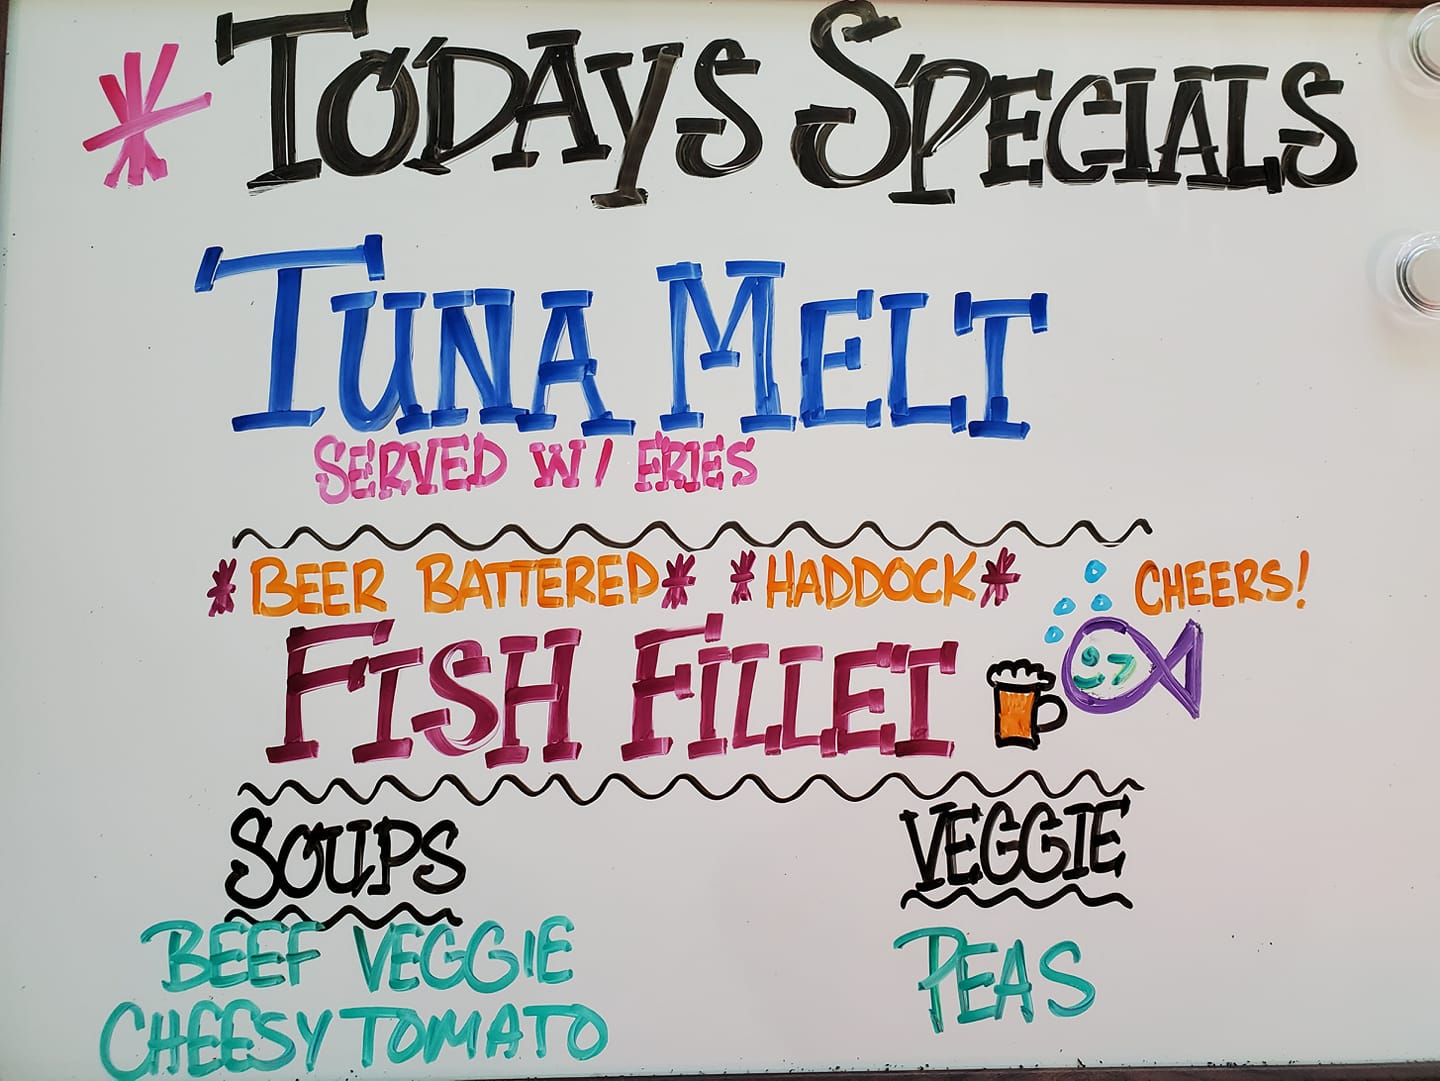 * TODAYS SPECIALS
TUNA MELT
SERVED W/ FRIES
*BEER BATTERED* *HADDOCK* CHEERS!
FISH FILLET
SOUPS
BEEF VEGGIE
CHEESY TOMATO
VEGGIE
PEAS